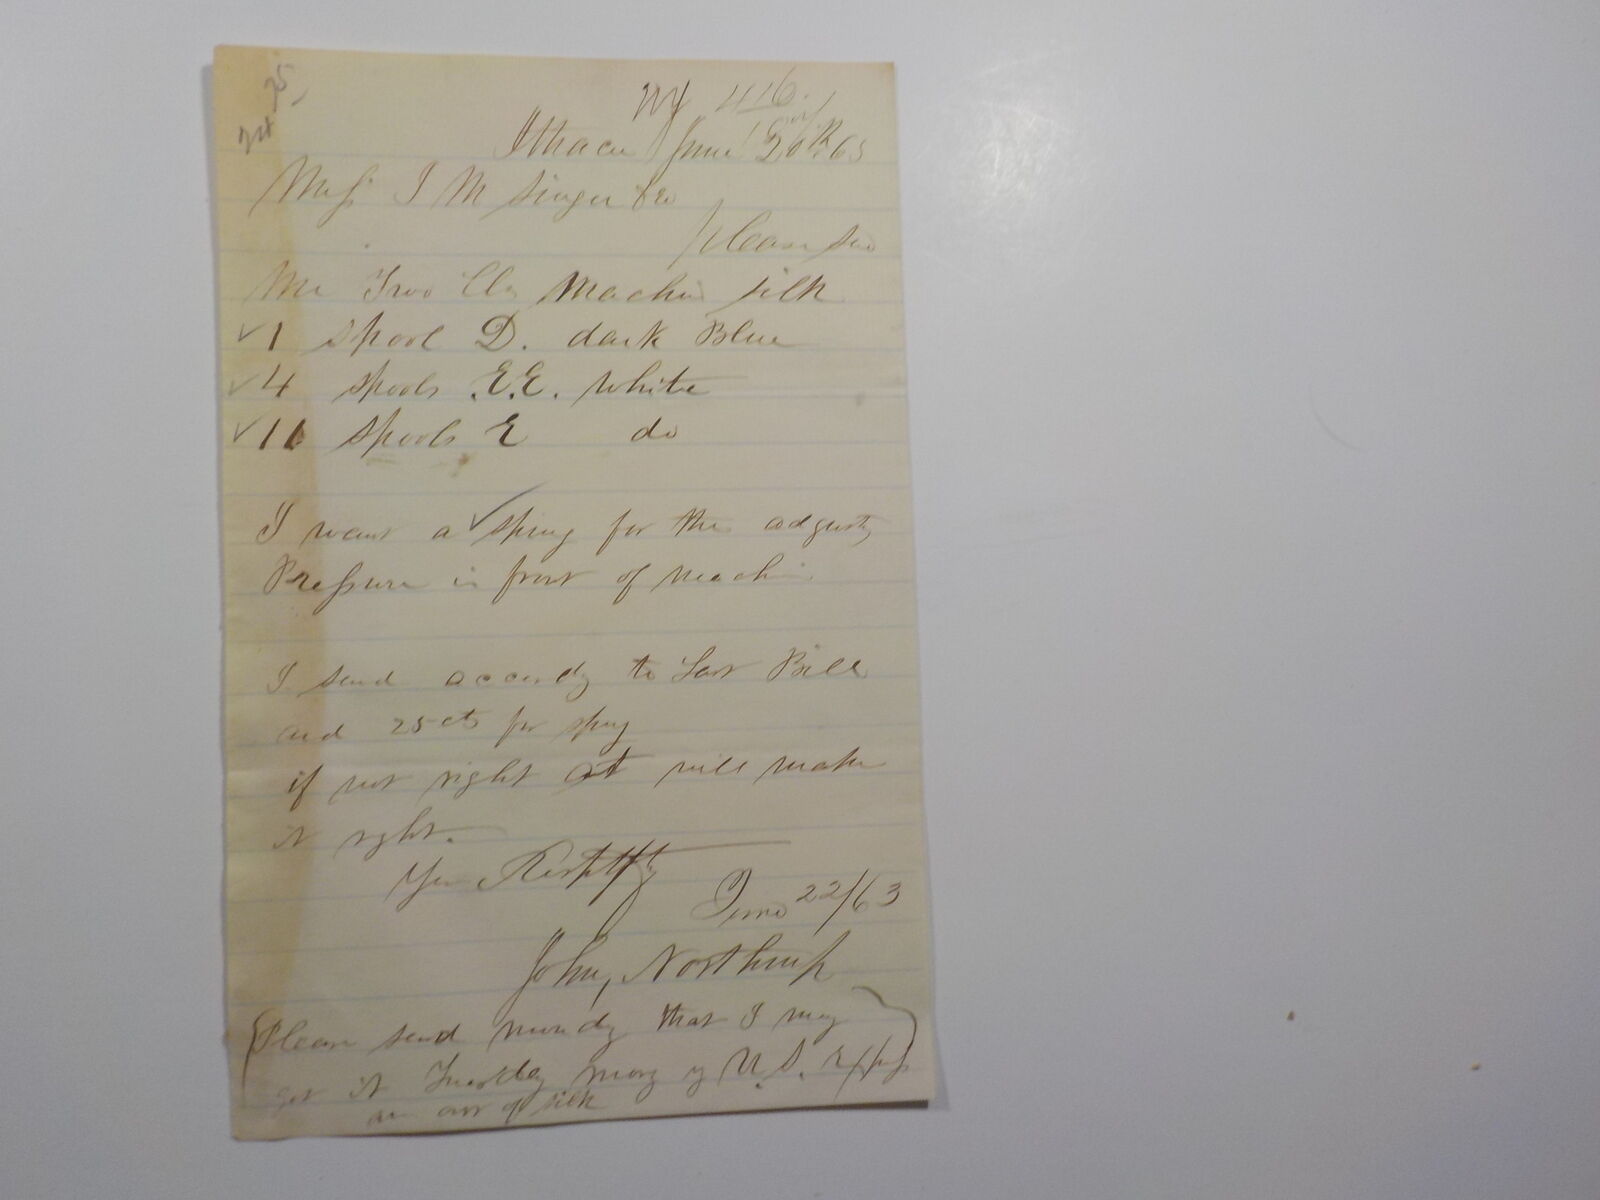 75,
24
NY 416.
Ithaca June 20th 63
Mess I M Singer & Co
please sen
Me Two lbs Machine silk
✓ 1 spool D. dark Blue
✓ 4 spools .E.E. white
✓ 11 spools E do
I want a ✓ spring for the adgustg
Pressure in front of machin
I send accordg to Last Bill
and 25 cts for sprg
if not right will make
it right.
Your Respctfly
June 22/63
John, Northrup
Please send monday that I may
get it Tuesday morg by U.S. Express
am out of silk